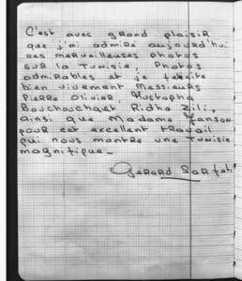 C'est avec grand plaisir
que j'ai admiré aujourd'hui
ces merveilleuses photos
sur la Tunisie, Photos
admirables et je félicite
bien vivement Messieurs
Pierre Olivier, Mustapha
Bouchoucha et Ridha Zili,
ainsi que Madame Yanson
pour cet excellent travail
qui nous montre une Tunisie
magnifique.
Gérard